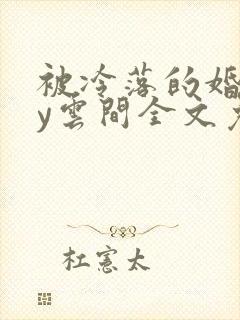 被冷落的婚
y雲間全文
杜憲太